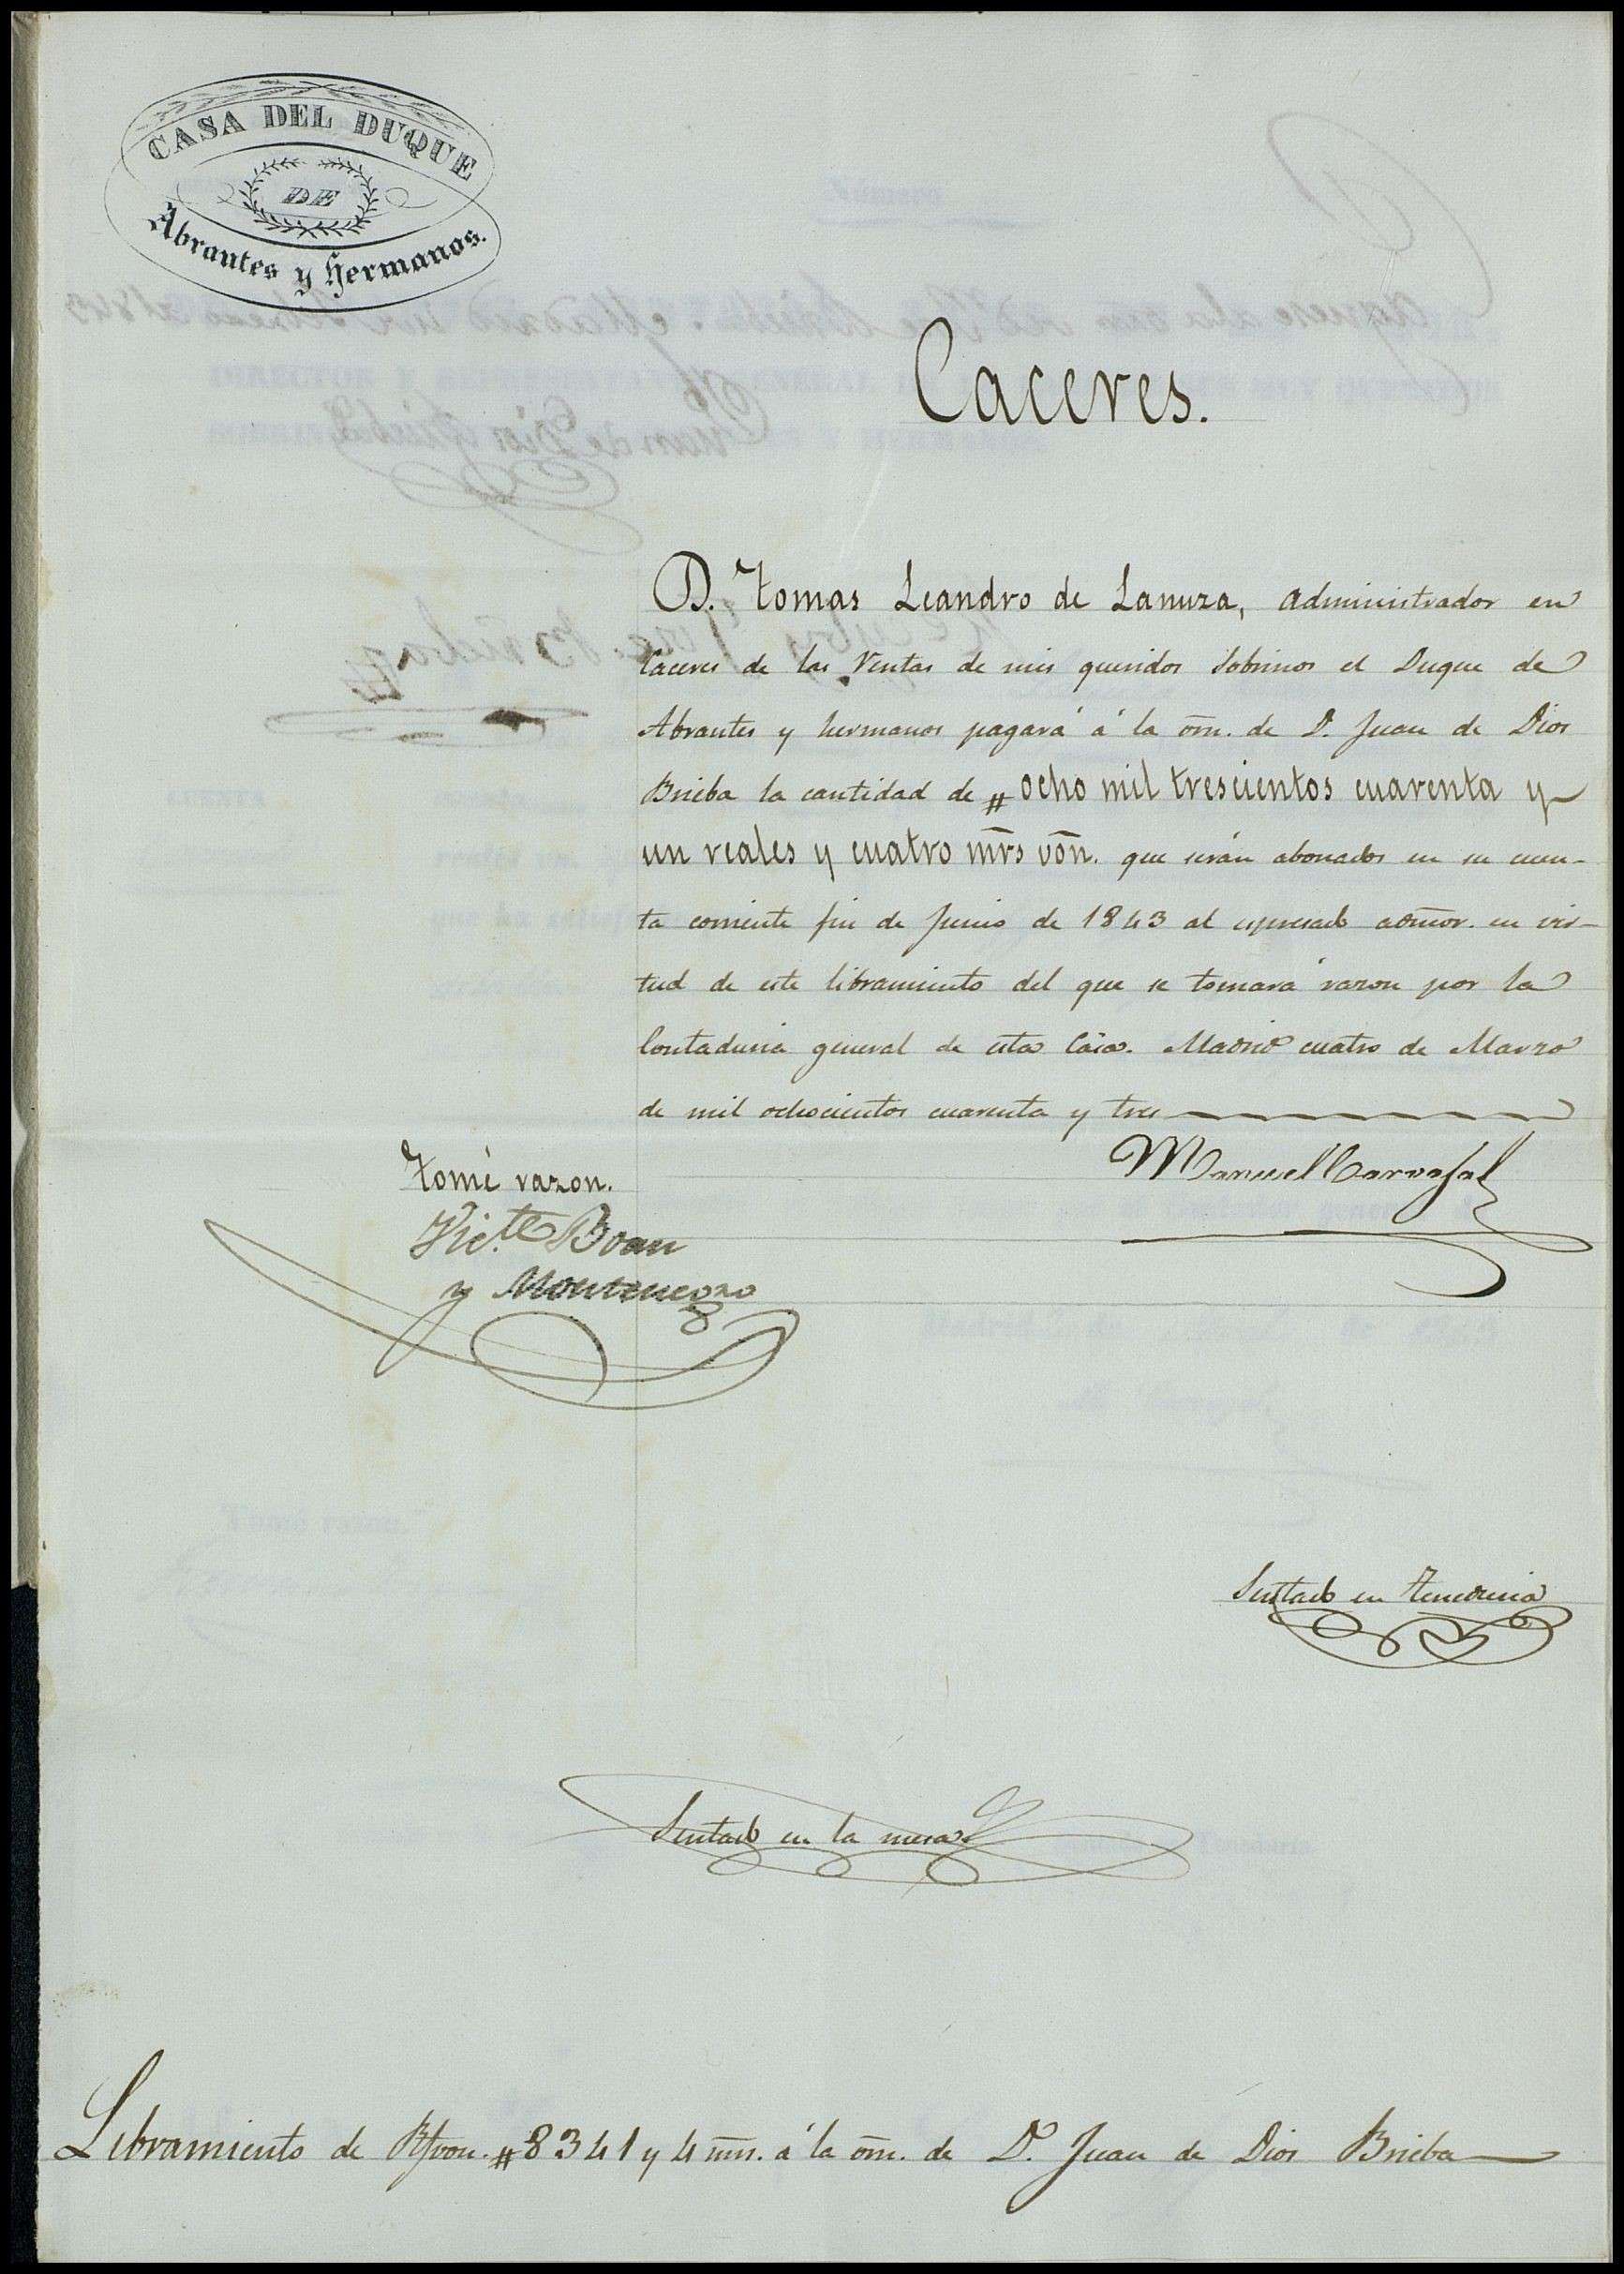 CASA DEL DUQUE
DE
Abrantes y Hermanos.
Caceres.
D. Tomas Leandro de Lanuza, administrador en
Caceres de las Rentas de mis queridos sobrinos el Duque de
Abrantes y hermanos pagará á la orn. de D. Juan de Dios
Brieba la cantidad de # ocho mil trescientos cuarenta y
un reales y cuatro mrs von. que serán abonados en su cuen-
ta corriente fin de Junio de 1843 al espresado admor. en vir-
tud de este libramiento del que se tomará razon por la
Contaduria general de esta Casa. Madrid cuatro de Marzo
de mil ochocientos cuarenta y tres
Manuel Carvajal
Tomé razon.
Victe Boan
y Montenegro
Sentado en teneduria
Sentado en la mesa
Libramiento de Rs von. # 8341 y 4 mrs. á la orn. de D. Juan de Dios Brieba